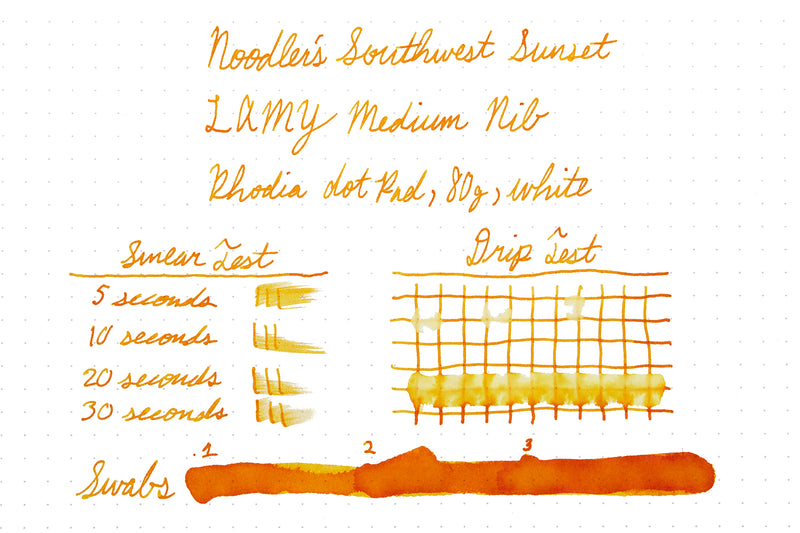 Noodler's Southwest Sunset
LAMY Medium Nib
Rhodia dot Pad, 80g, white
Smear Test
5 seconds
10 seconds
20 seconds
30 seconds
Drip Test
1 2 3
Swabs